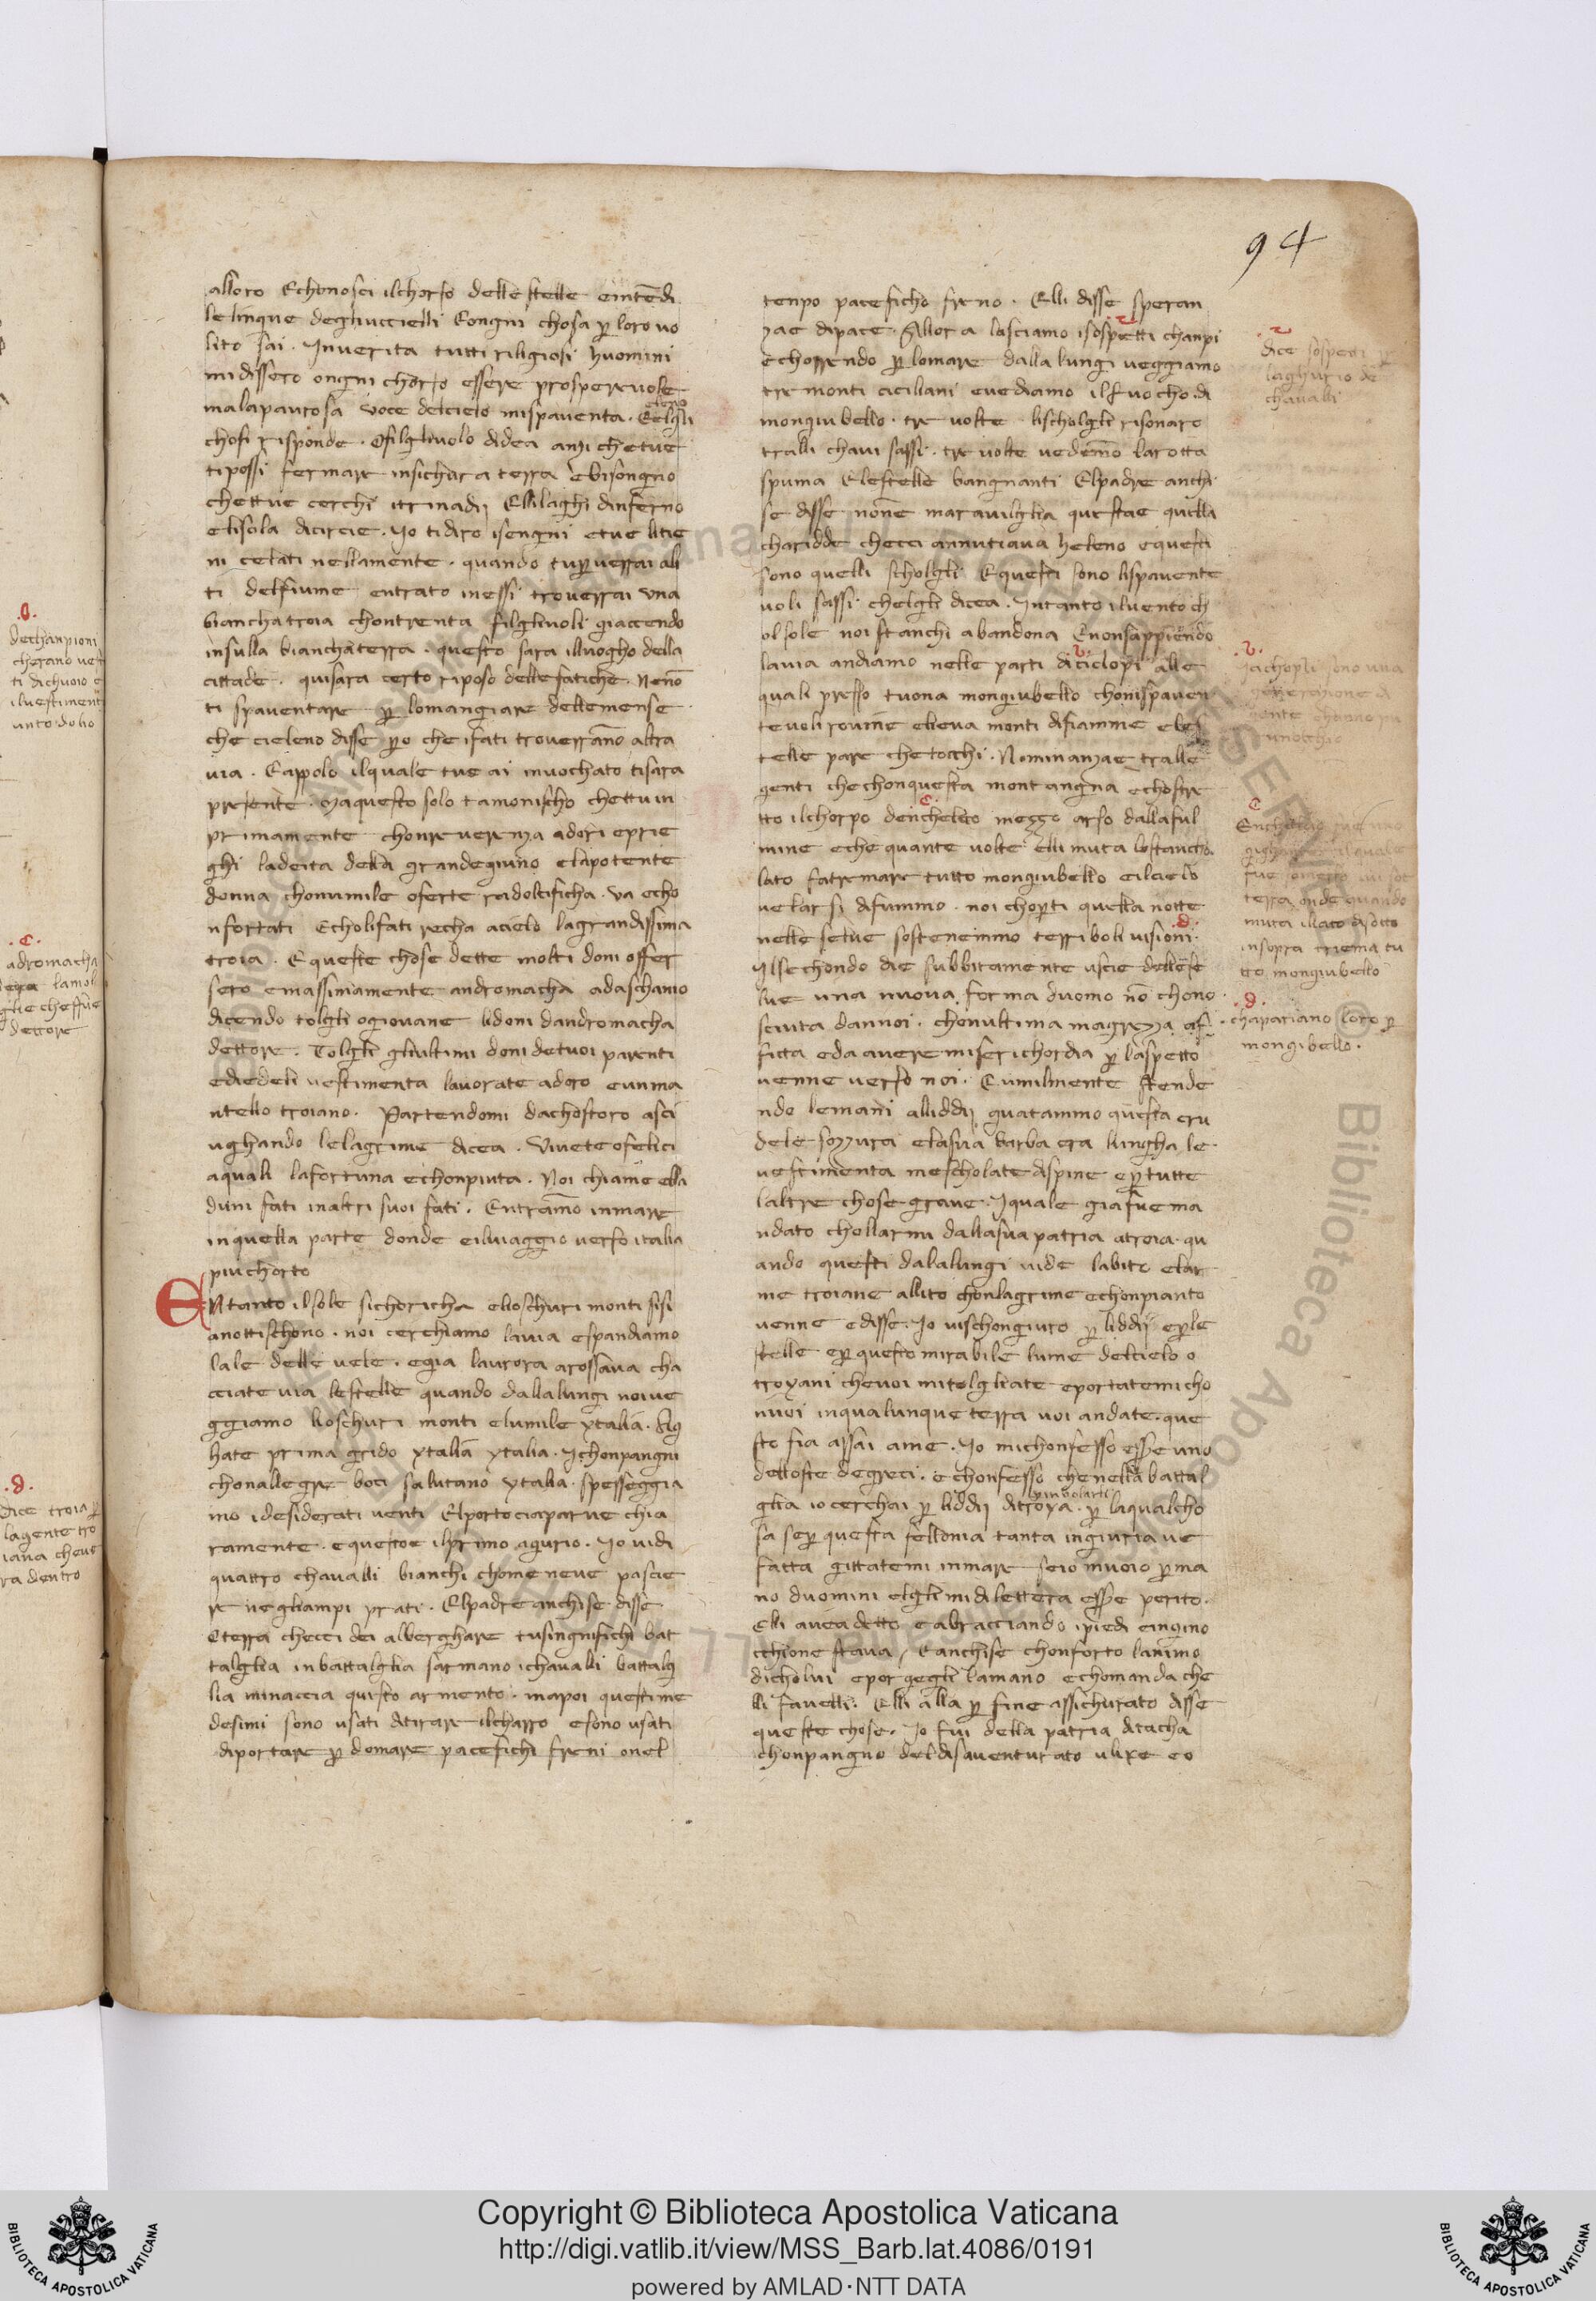 94
alloro Echonosci ilchorso delle stelle eintēdi
le lingue degliuccielli Eongni chosa p loro uo
lito sai. Inuerita tutti riligiosi huomini
mi dissero ongni chorso essere prosperevole
malapaurosa voce delcielo mispaventa. Eelgli
eleno
chosi risponde. Ofilgliuolo didea anzi chetue
ti possi fermare insichura terra ebisongno
chettue cerchi itrinadij Ellilaghi dinferno
elisola dicircie. Io tidiro isengni etue litie
ni celati nellamente. quando tuperverrai ali
ti delfiume entrato inessi troverrai una
biancha troia chontrenta filgliuoli giaccendo
insulla bianchaterra. questo sara illuogho della
cittade. quisara certo riposo dellefatiche. Nenō
ti spaventare p lomangiare dellemense
che cieleno disse po che ifati troverrāno altra
via. Eappolo ilquale tue ai invochato tisara
presente. Maquesto solo tamonischo chettu in
primamente chonreverenza adori eprie
ghi ladeita della grandegiuno elapotente
donna chonumile oferte radolcificha. va echo
nfortati Echolifati recha acielo lagrandissima
troia. Equeste chose dette molti doni offer
sero emassimamente andromacha adaschanio
dicendo tolgli ogiovane lidoni dandromacha
dettore. Tolgli gliultimi doni detuoi parenti
ediedeli vestimenta lavorate adoro eunma
ntello troiano. Partendomi dachostoro asci
ughando lelagrime dicea. Vivete ofelici
aquali lafortuna echonpiuta. Noi chiame ella
duni fati inaltri suoi fati. Entramo inmare
inquella parte donde eilviaggio verso italia
piu chorto
ENtanto ilsole sichoricha elioschuri monti sisi
anottischono. noi cerchiamo lavia espandiamo
lale delle vele. egia laurora arossava cha
cciate via lestelle quando dallalungi noive
ggiamo lioschuri monti elumile ytalia. Ag
hate prima grido ytalia ytalia. Ichonpangni
chonallegre boci salutano ytalia. spesseggia
mo idesiderati venti Elportociaparve chia
ramente. equestoe ilprimo agurio. Io vidi
quattro chavalli bianchi chome neve pascie
re negliampi prati. Elpadre anchise disse
Oterra checci dei alberghare tusingnifichi bat
talglia inbattalglia sarmano ichavalli battalg
lia minaccia questo armento. mapoi questime
desimi sono usati ditirare ilcharro esono usati
diportare p domare pacefichi freni onel
tenpo paceficho freno. Elli disse speran
zae dipace. Allora lasciamo isospetti chanpi
echorrendo p lomare dalla lungi veggiamo
tre monti ciciliani evediamo ilfuocho di
mongiubello. tre volte lischolgli risonare
tralli chavi sassi. tre volte vedemo larotta
spuma Elestelle bangnanti Elpadre anchi
se disse none maravilglia questae quella
chariddi checci annutiava heleno equesti
sono quelli scholgli Equesti sono lispavente
voli sassi chelgli dicea. Intanto ilvento ch
olsole noi stanchi abandona Enonsappiendo
lavia andiamo nelle parti diciclopi alle
quali presso tuona mongiubello chonispaven
tevoli rovine elleva monti difiamme eles
telle pare chetocchi. Nominanzae tralle
genti chechonquesta montangna echostre
tto ilchorpo denchelito mezzo arso dallaful
mine eche quante volte elli muta lostancho
lato fatremare tutto mongiubello eilcielo
velar si difummo. noi choperti quella notte
nelle selve sostenemmo terriboli visioni.
Ilsechondo die subbitamente uscie delle se
lve una nuova forma duomo nō chono
sciuta dannoi. chenultima magrezza af
fitta eda avere miserichordia p laspetto
venne verso noi. Eumilmente stende
ndo lemani alliddij guatammo questa cru
dele sozzura elasua barba era lungha le
vestimenta mescholate dispine eptutte
laltre chose grave. Iquale gia fue ma
ndato chollarmi dallasua patria atroia. qu
ando questi dalalungi vide labito elar
me troiane allito chonlagrime echonpianto
venne edisse. Io vischongiuro p liddij eple
stelle ep questo mirabile lume delcielo o
troyani chevoi mitolgliate eportatemi cho
nvoi inqualunque terra voi andate. que
sto fia assai ame. Io michonfesso essere uno
delloste degreci. echonfesso chenella battal
glia io cerchai p liddij ditroya. p laqualcho
p involarli
sa sep questa fellonia tanta ingiuria ve
fatta gittatemi inmare seio muoio pma
no duomini elgli mi diletterà essere perito.
Elli avea detto eabracciando ipiedi eingino
cchione stava, Eanchise chonforto lanimo
dicholui eporgegli lamano echomanda che
lli favelli. Elli alla p fine assichurato disse
queste chose. Io fui della patria ditacha
chonpangno deldisaventurato ulixe eo
dice sospetti p
laghurio de
chavalli
.b.
Iachopli sono una
generazione di
gente
c
Enchelado fue uno
gighante ilquale
fue somerso sotto
terra onde quando
muta illato disotto
insopra triema tu
tto mongiubello
.d.
chapariano loro p
mongibello.
dechanpioni
.c.
adromacha
dettore
.d.
dice troia p
lagente tro
iana cheue
ra dentro
Copyright © Biblioteca Apostolica Vaticana
http://digi.vatlib.it/view/MSS_Barb.lat.4086/0191
powered by AMLAD·NTT DATA
BIBLIOTECA APOSTOLICA VATICANA
BIBLIOTECA APOSTOLICA VATICANA